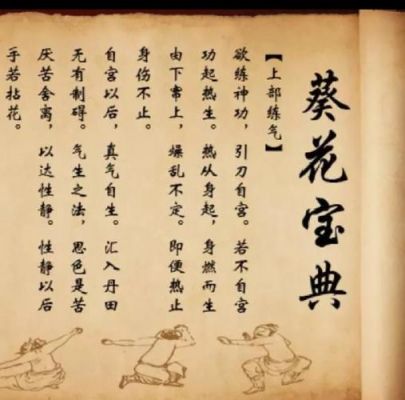 葵花宝典
【上部练气】
欲练神功，引刀自宫。若不自宫
功起热生。热从身起，身燃而生
由下窜上，燥乱不定。即便热止
身伤不止。
自宫以后，真气自生。汇入丹田
无有制碍。气生之法，思色是苦
厌苦舍离，以达性静。性静以后
手若拈花。